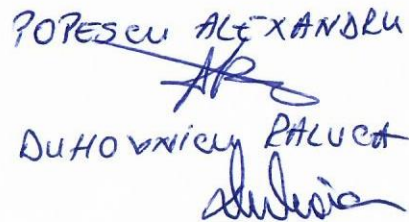 POPESCU ALEXANDRU
DUHOVNICU RALUCA